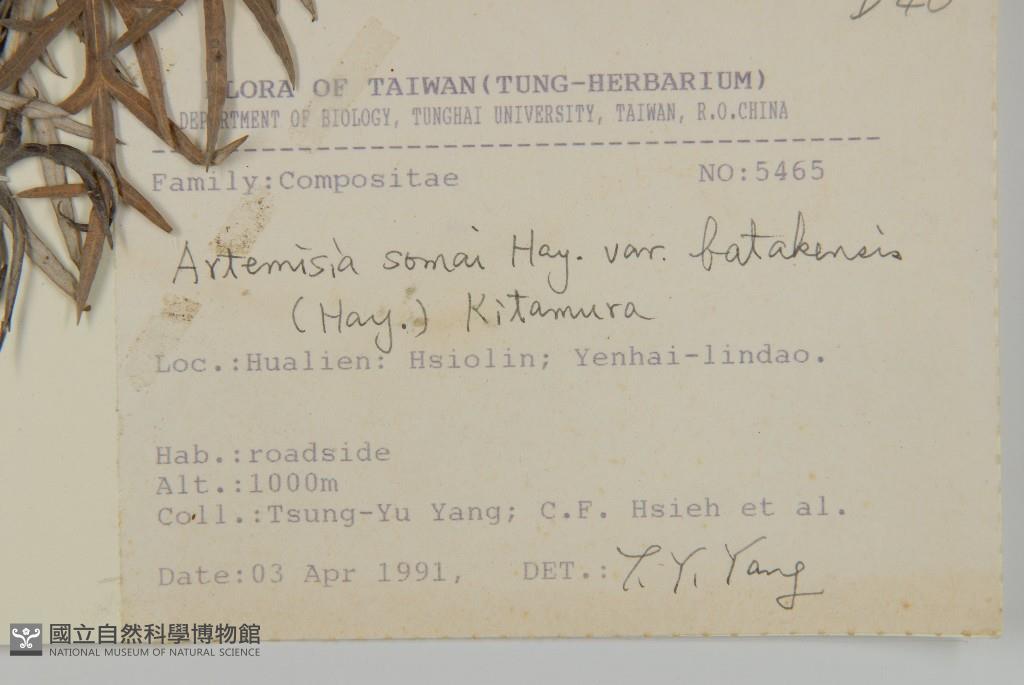 LORA OF TAIWAN(TUNG-HERBARIUM)
DEPARTMENT OF BIOLOGY, TUNGHAI UNIVERSITY, TAIWAN, R.O.CHINA
Family:Compositae NO:5465
Artemisia somai Hay. var. batakensis
(Hay.) Kitamura
Loc.:Hualien: Hsiolin; Yenhai-lindao.
Hab.:roadside
Alt.:1000m
Coll.:Tsung-Yu Yang; C.F. Hsieh et al.
Date:03 Apr 1991, DET.: T. Y. Yang
國立自然科學博物館
NATIONAL MUSEUM OF NATURAL SCIENCE